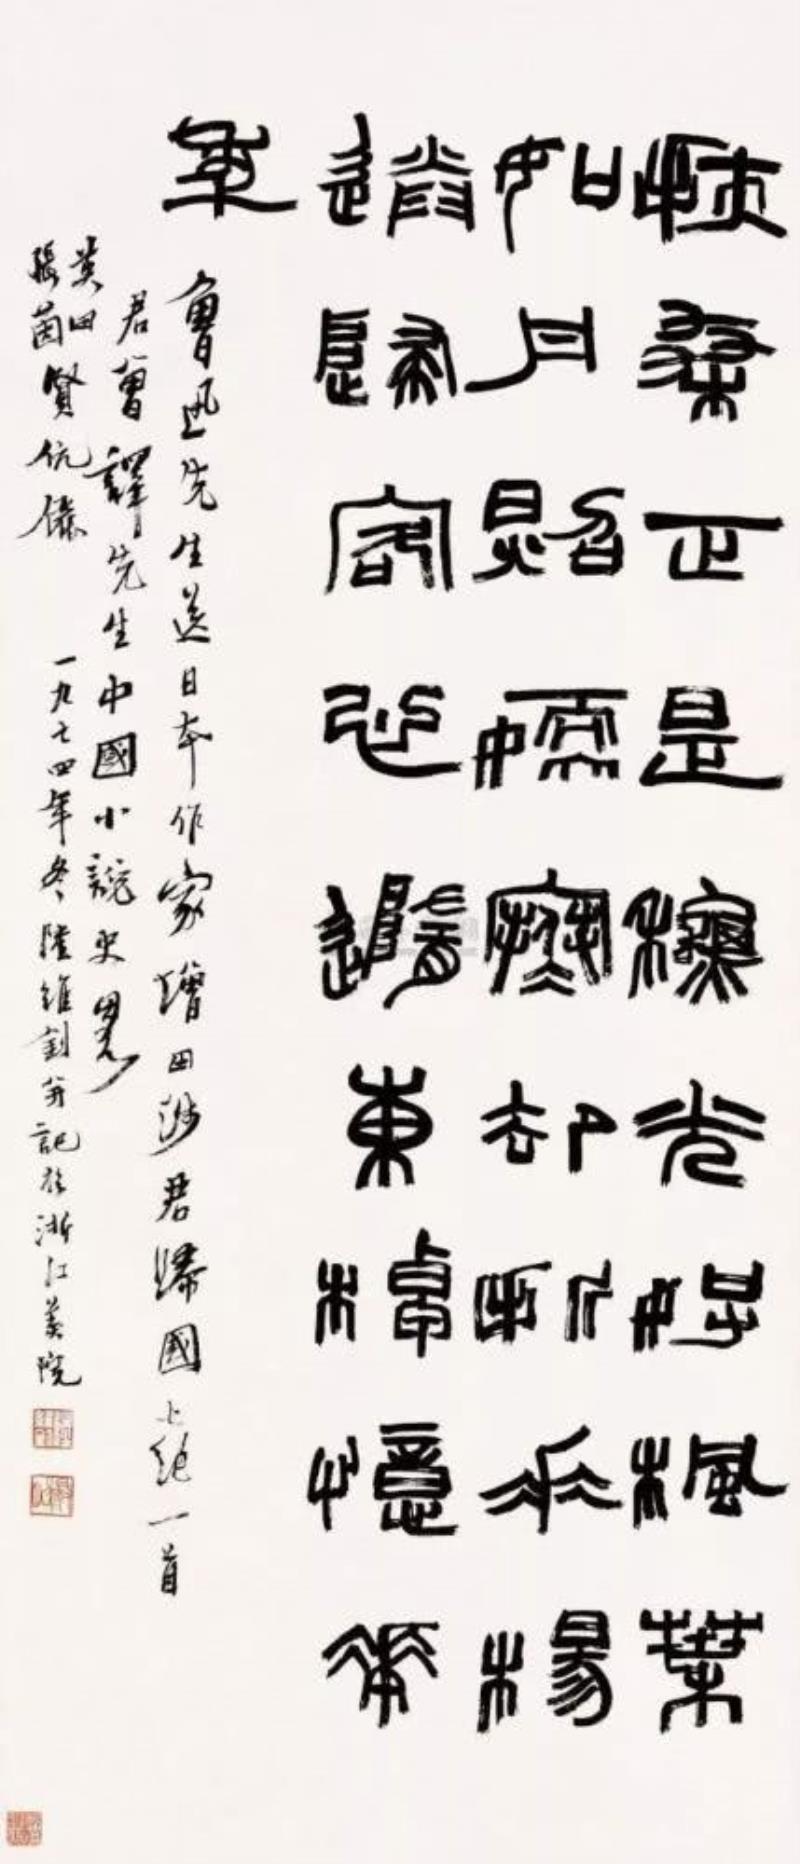 扶桑正是秋光好楓葉
如丹照嫩寒却折垂楊
送歸客心隨東棹憶華
年
魯迅先生送日本作家增田涉君歸國七絕一首
君曾譯先生中國小說史畧
英田
張茵賢伉儷
一九七四年冬陸維釗并記於浙江美院